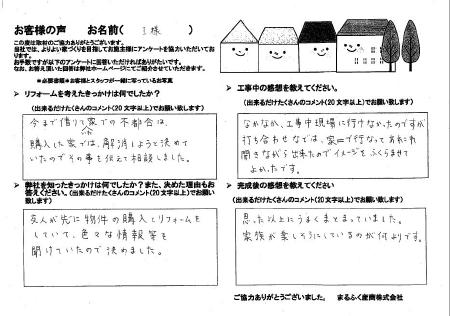 お客様の声　お名前（ I様 ）
この度は取材のご協力ありがとうございます。
当社では、よりよい家づくりを目指してお施主様にアンケートを協力いただいております。
お手数ですが以下のアンケートに回答いただければありがたいです。
なお、お答え頂いた回答は弊社ホームページにてご紹介させていただきます。
※必要書類※お客様とスタッフが一緒に写っているお写真
➢ リフォームを考えたきっかけは何でしたか？
（出来るだけたくさんのコメント（20文字以上）でお願い致します）
今まで借りて家での不都合は、
購入した家では、解消しようと決めて
いたのでその事を伝えて相談しました。
➢ 弊社を知ったきっかけは何でしたか？また、決めた理由もお答えください。（出来るだけたくさんのコメント（20文字以上）でお願い致します）
友人が先に物件の購入とリフォームを
していて、色々な情報等を
聞けていたので決めました。
➢ 工事中の感想を教えてください。
（出来るだけたくさんのコメント（20文字以上）でお願い致します）
なかなか、工事中現場に行けなかったのですが
打ち合わせなでは、家で行なってあれこれ
聞きながら出来たのでイメージをふくらませて
よかったです。
➢ 完成後の感想を教えてください
（出来るだけたくさんのコメント（20文字以上）でお願い致します）
思った以上にうまくまとまっていました。
家族が楽しそうにしているのが何よりです。
ご協力ありがとうございました。　まるふく産商株式会社